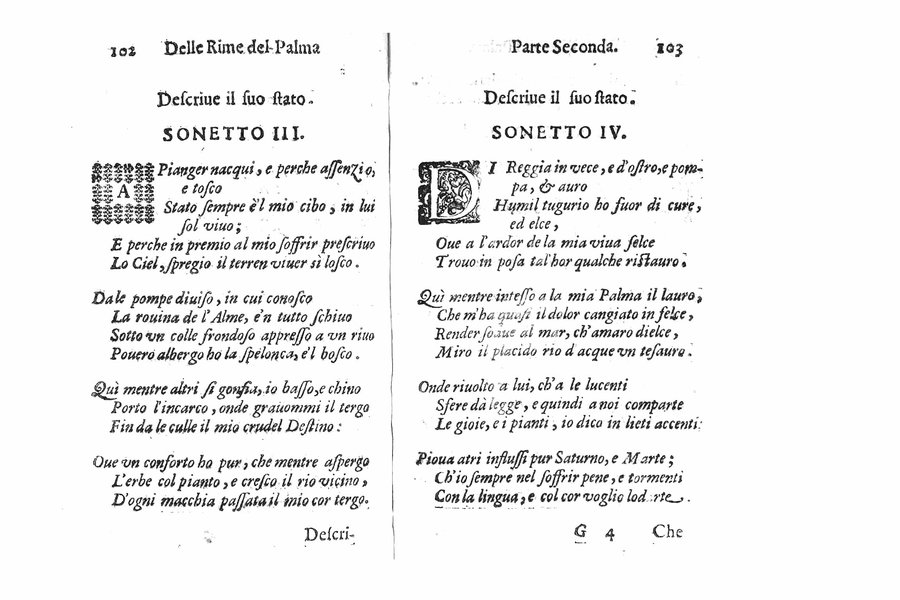 102 Delle Rime del Palma
Deſcriue il ſuo ſtato.
SONETTO III.
A Pianger nacqui, e perche aſſenzio,
e toſco
Stato ſempre è'l mio cibo, in lui
ſol viuo;
E perche in premio al mio ſoffrir preſcriuo
Lo Ciel, ſpregio il terren viuer sì loſco.
Da le pompe diuiſo, in cui conoſco
La rouina de l'Alme, e'n tutto ſchiuo
Sotto vn colle frondoſo appreſſo a vn riuo
Pouero albergo ho la ſpelonca, e'l boſco.
Quì mentre altri ſi gonfia, io baſſo, e chino
Porto l'incarco, onde grauommi il tergo
Fin da le culle il mio crudel Deſtino:
Oue vn conforto ho pur, che mentre aſpergo
L'erbe col pianto, e creſco il rio vicino,
D'ogni macchia paſſata il mio cor tergo.
Deſcri-
Parte Seconda. 103
Deſcriue il ſuo ſtato.
SONETTO IV.
DI Reggia in vece, e d'oſtro, e pom-
pa, & auro
Humil tugurio ho fuor di cure,
ed elce,
Oue a l'ardor de la mia viua ſelce
Trouo in poſa tal'hor qualche riſtauro.
Quì mentre inteſſo a la mia Palma il lauro,
Che m'ha quaſi il dolor cangiato in felce,
Render ſoaue al mar, ch'amaro dielce,
Miro il placido rio d'acque vn teſauro.
Onde riuolto a lui, ch'a le lucenti
Sfere dà legge, e quindi a noi comparte
Le gioie, e i pianti, io dico in lieti accenti:
Pioua atri influſſi pur Saturno, e Marte;
Ch'io ſempre nel ſoffrir pene, e tormenti
Con la lingua, e col cor voglio lodarte.
G 4 Che